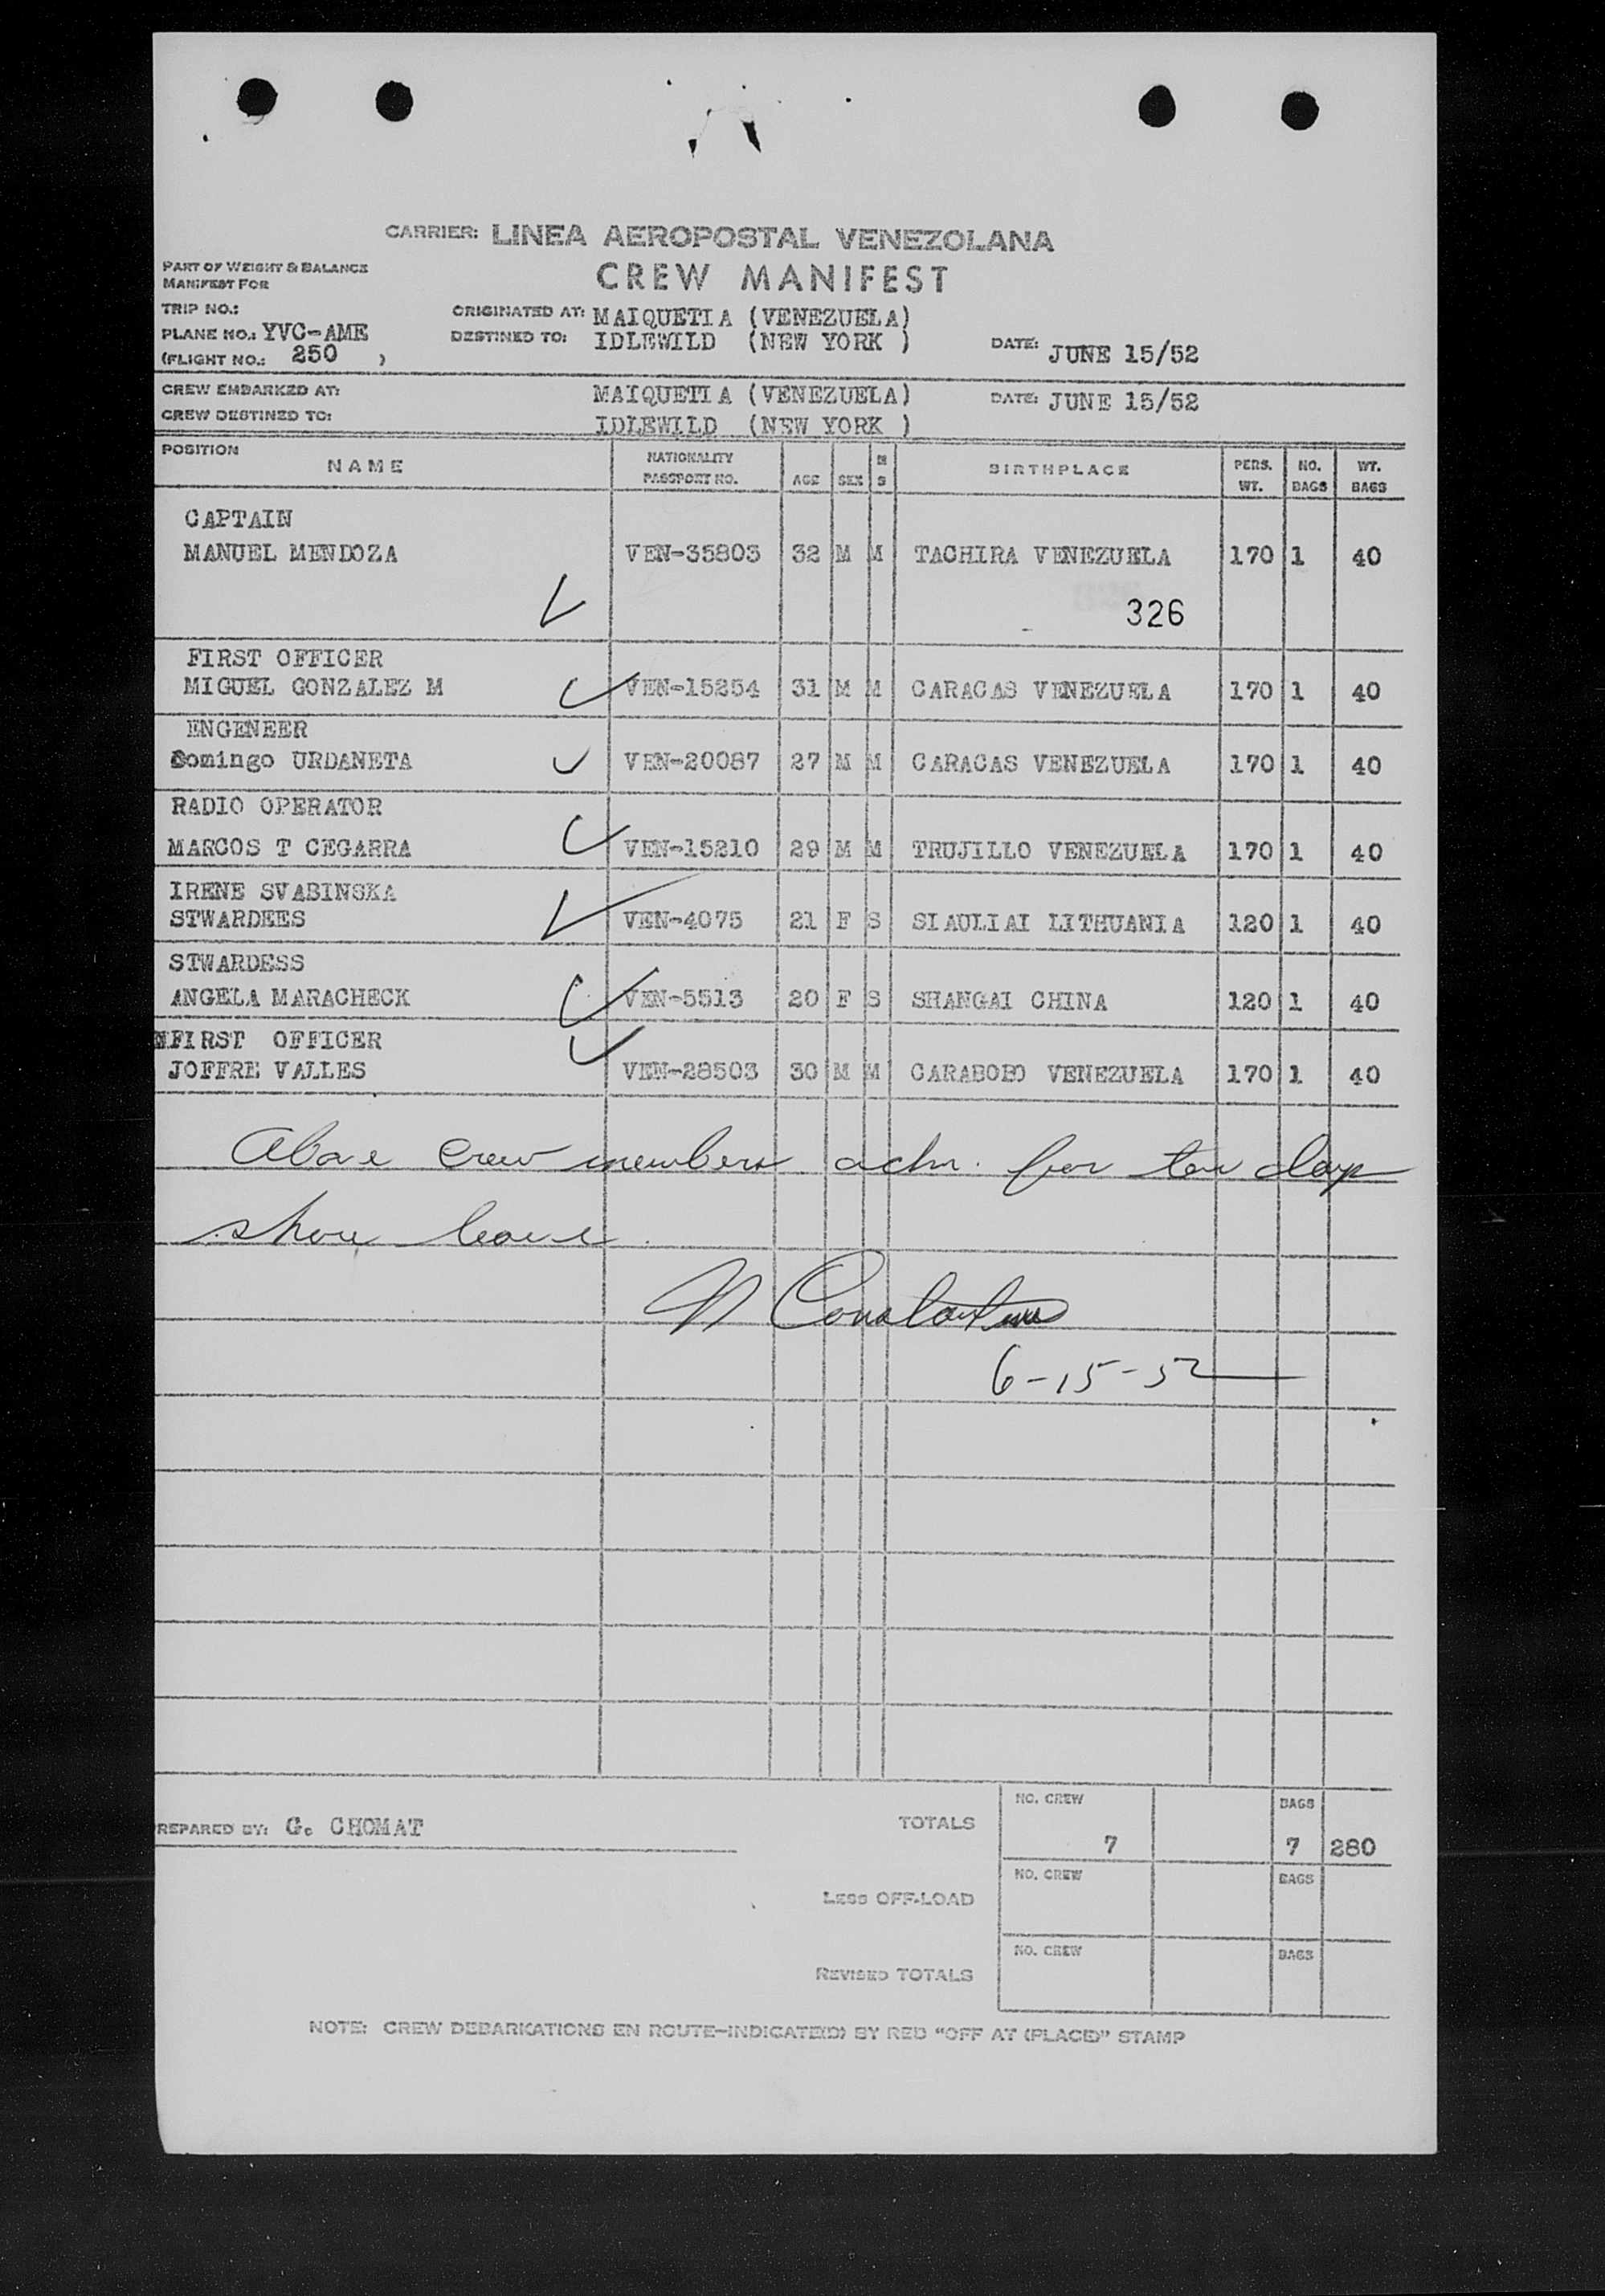 CARRIER: LINEA AEROPOSTAL VENEZOLANA
CREW MANIFEST
PART OF WEIGHT & BALANCE
MANIFEST FOR
TRIP NO.:
ORIGINATED AT: MAIQUETIA (VENEZUELA)
PLANE NO.: YVC-AME
DESTINED TO: IDLEWILD (NEW YORK )
DATE: JUNE 15/52
(FLIGHT NO.: 250 )
CREW EMBARKED AT: MAIQUETIA (VENEZUELA) DATE: JUNE 15/52
CREW DESTINED TO: IDLEWILD (NEW YORK )
POSITION NAME NATIONALITY PASSPORT NO. AGE SEX M S BIRTHPLACE PERS. WT. NO. BAGS WT. BAGS
CAPTAIN
MANUEL MENDOZA VEN-35803 32 M M TACHIRA VENEZUELA 170 1 40
326
FIRST OFFICER
MIGUEL GONZALEZ M VEN-15254 31 M M CARACAS VENEZUELA 170 1 40
ENGENEER
Domingo URDANETA VEN-20087 27 M M CARACAS VENEZUELA 170 1 40
RADIO OPERATOR
MARCOS T CEGARRA VEN-15210 29 M M TRUJILLO VENEZUELA 170 1 40
IRENE SVABINSKA
STWARDEES VEN-4075 21 F S SIAULIAI LITHUANIA 120 1 40
STWARDESS
ANGELA MARACHECK VEN-5513 20 F S SHANGAI CHINA 120 1 40
FIRST OFFICER
JOFFRE VALLES VEN-28503 30 M M CARABOBO VENEZUELA 170 1 40
Above crew members adm. for ten days
shore leave.
N Constantine
6-15-52
PREPARED BY: G. CHOMAT
TOTALS NO. CREW 7 BAGS 7 280
LESS OFF-LOAD NO. CREW BAGS
REVISED TOTALS NO. CREW BAGS
NOTE: CREW DEBARKATIONS EN ROUTE-INDICATE(D) BY RED "OFF AT (PLACE)" STAMP